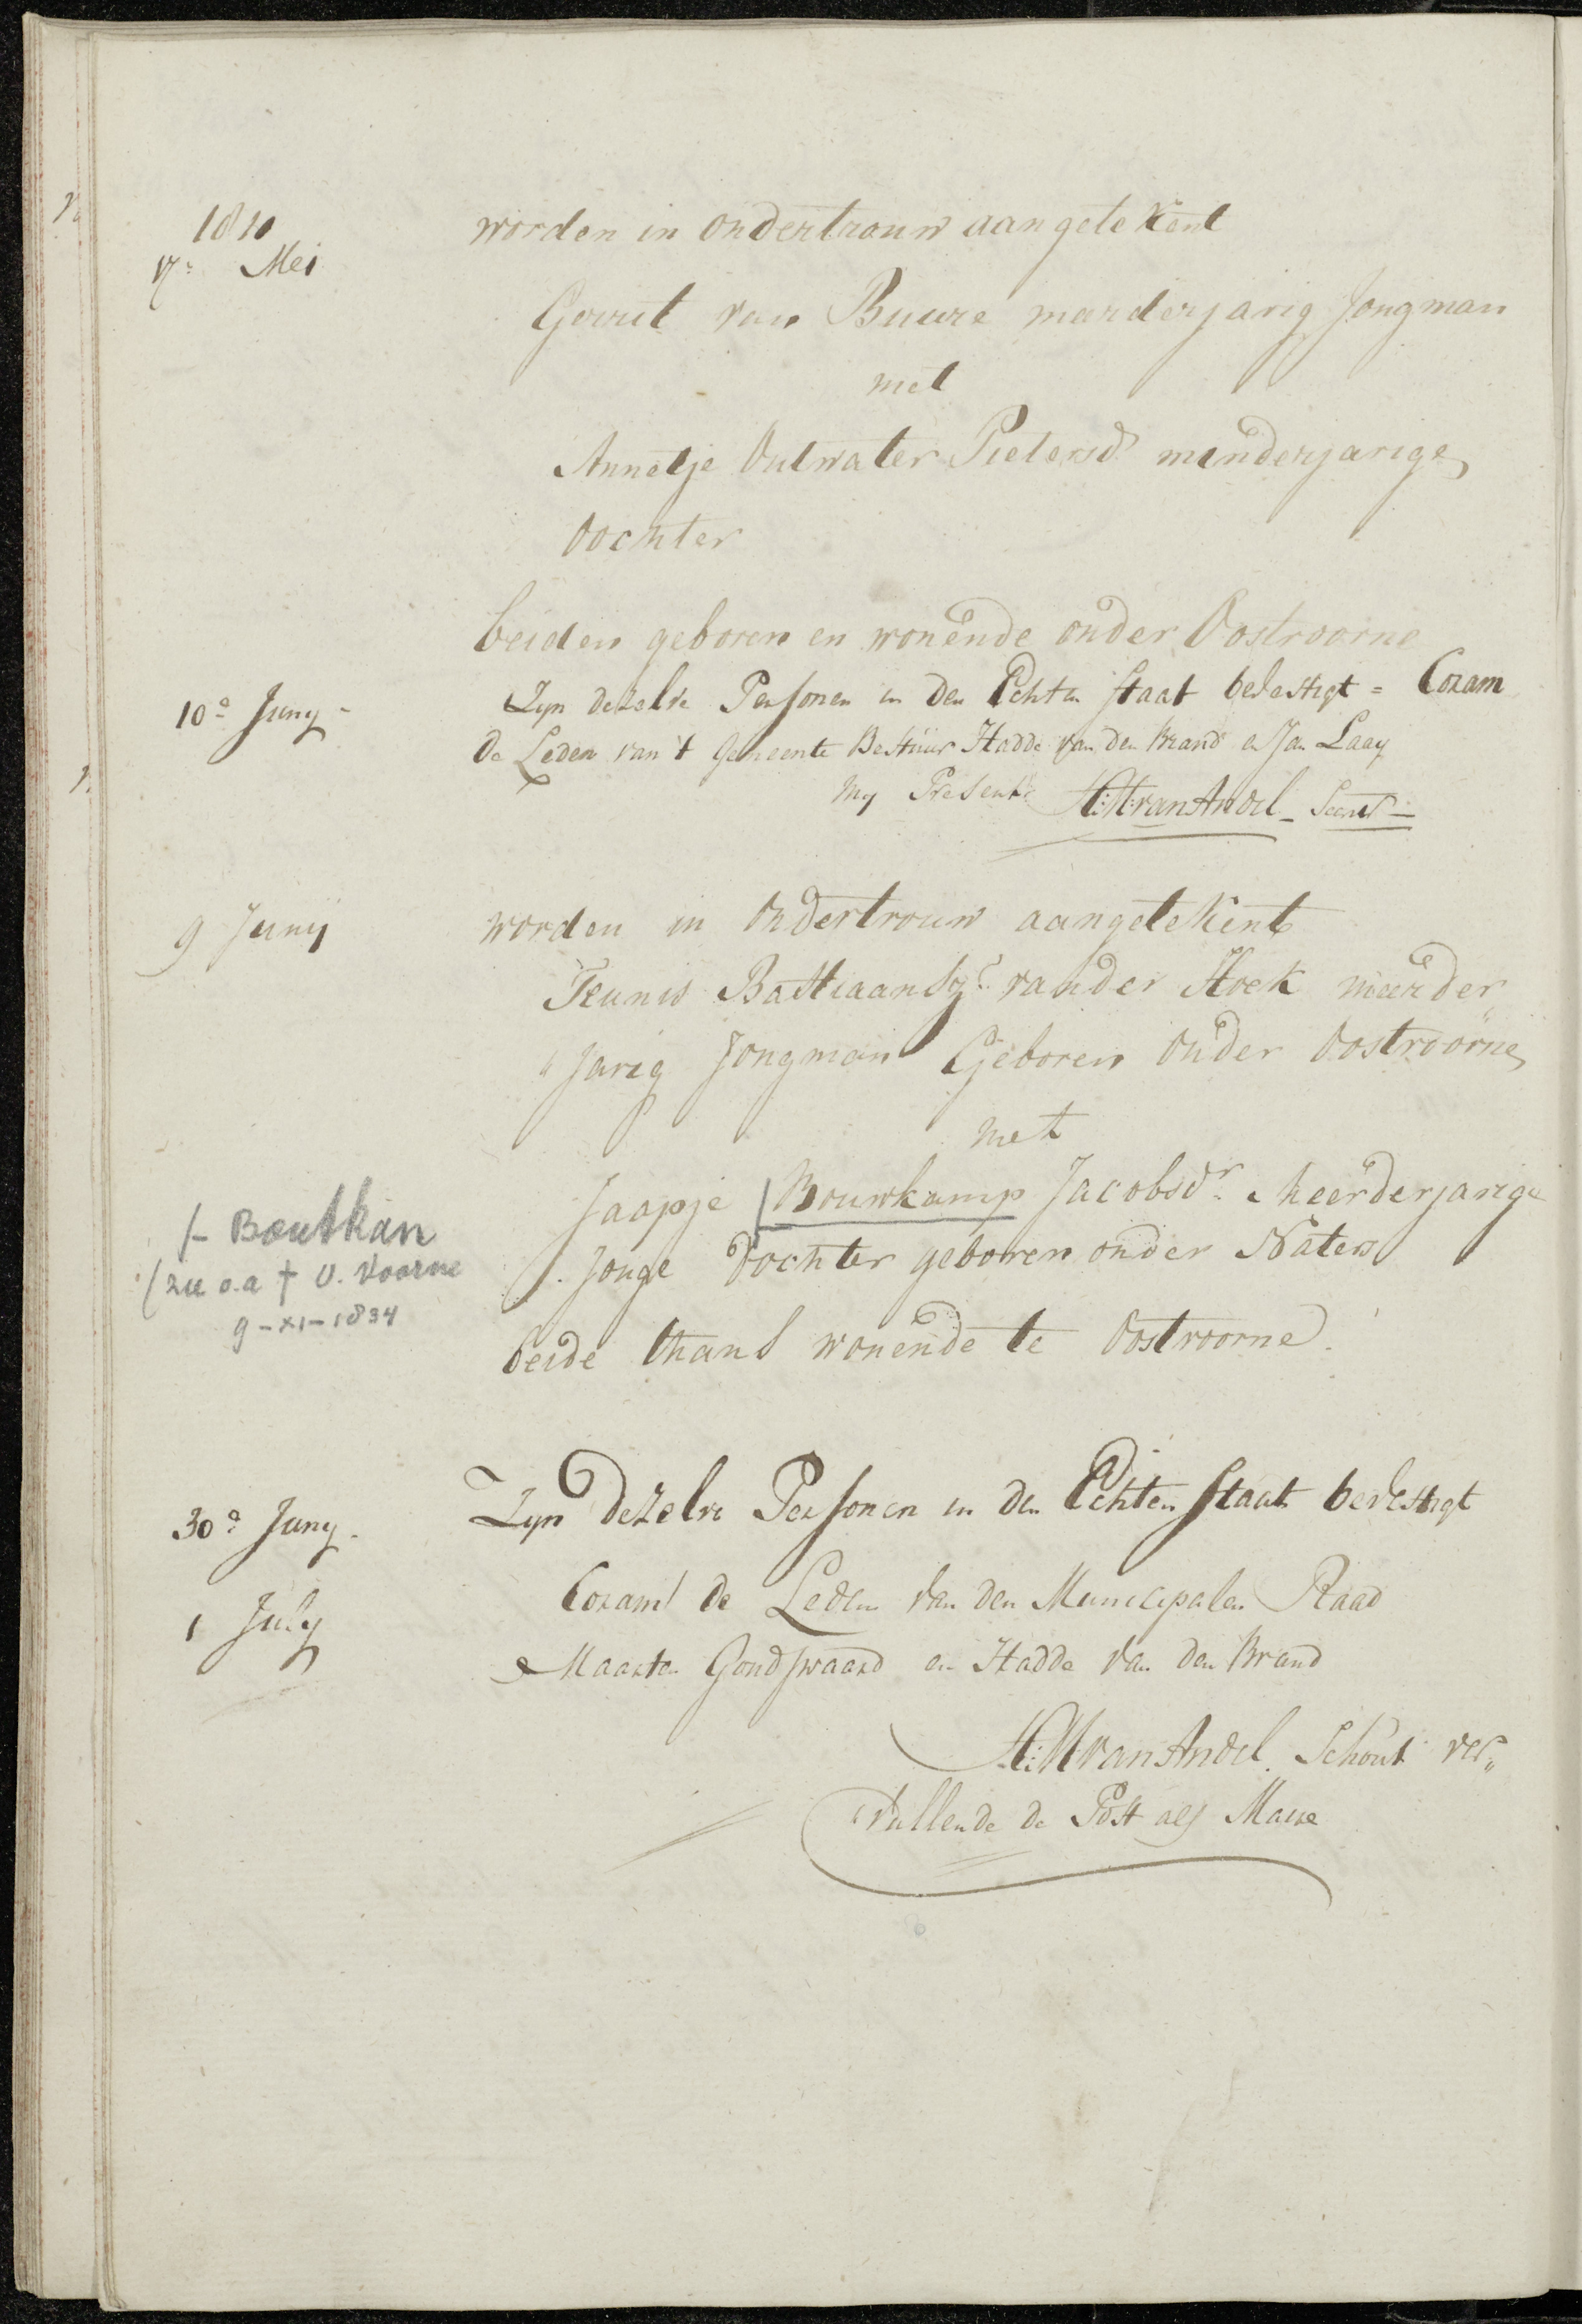 1810
17: Mei
worden in ondertrouw aangetekent
Gerrit van Buure marderjarig Jongman
met
Annetje Outwater Pietersd: minderjarige
Dochter
beiden geboren en wonende onder Oostvoorne
10e Juny -
Zyn dezelve Personen in den Echten Staat bevestigt = Coram
De Leden van 't Gemeente Bestuur Hadde van den Brand en Jan Laay
My Presente H: M: van Andel - Secrets -
9 Junij
worden in Ondertrouw aangetekent
Teunis Bastiaansz: van der Hoek meerder
" Jarig Jongman Geboren Onder Oostvoorne
met
Jaapje / Bouwkamp Jacobsdr: Meerderjarige
/- Boutkan
. Jonge Dochter geboren onder Naters
(zie o.a † O. Voorne
9-XI-1834
beide thans wonende te Oostvoorne.
30e Juny.
Zyn dezelve Personen in den Echten Staat bevestigt
1 July
Coram de Leden van den Municipalen Raad
Maarten Gondswaard en Hadde van den Brand
H: M van Andel. Schout ver„
"vullende de Post als Maire